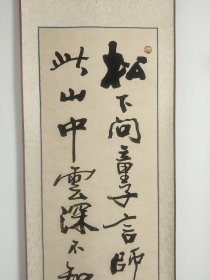 松下问童子言師
此山中雲深不知